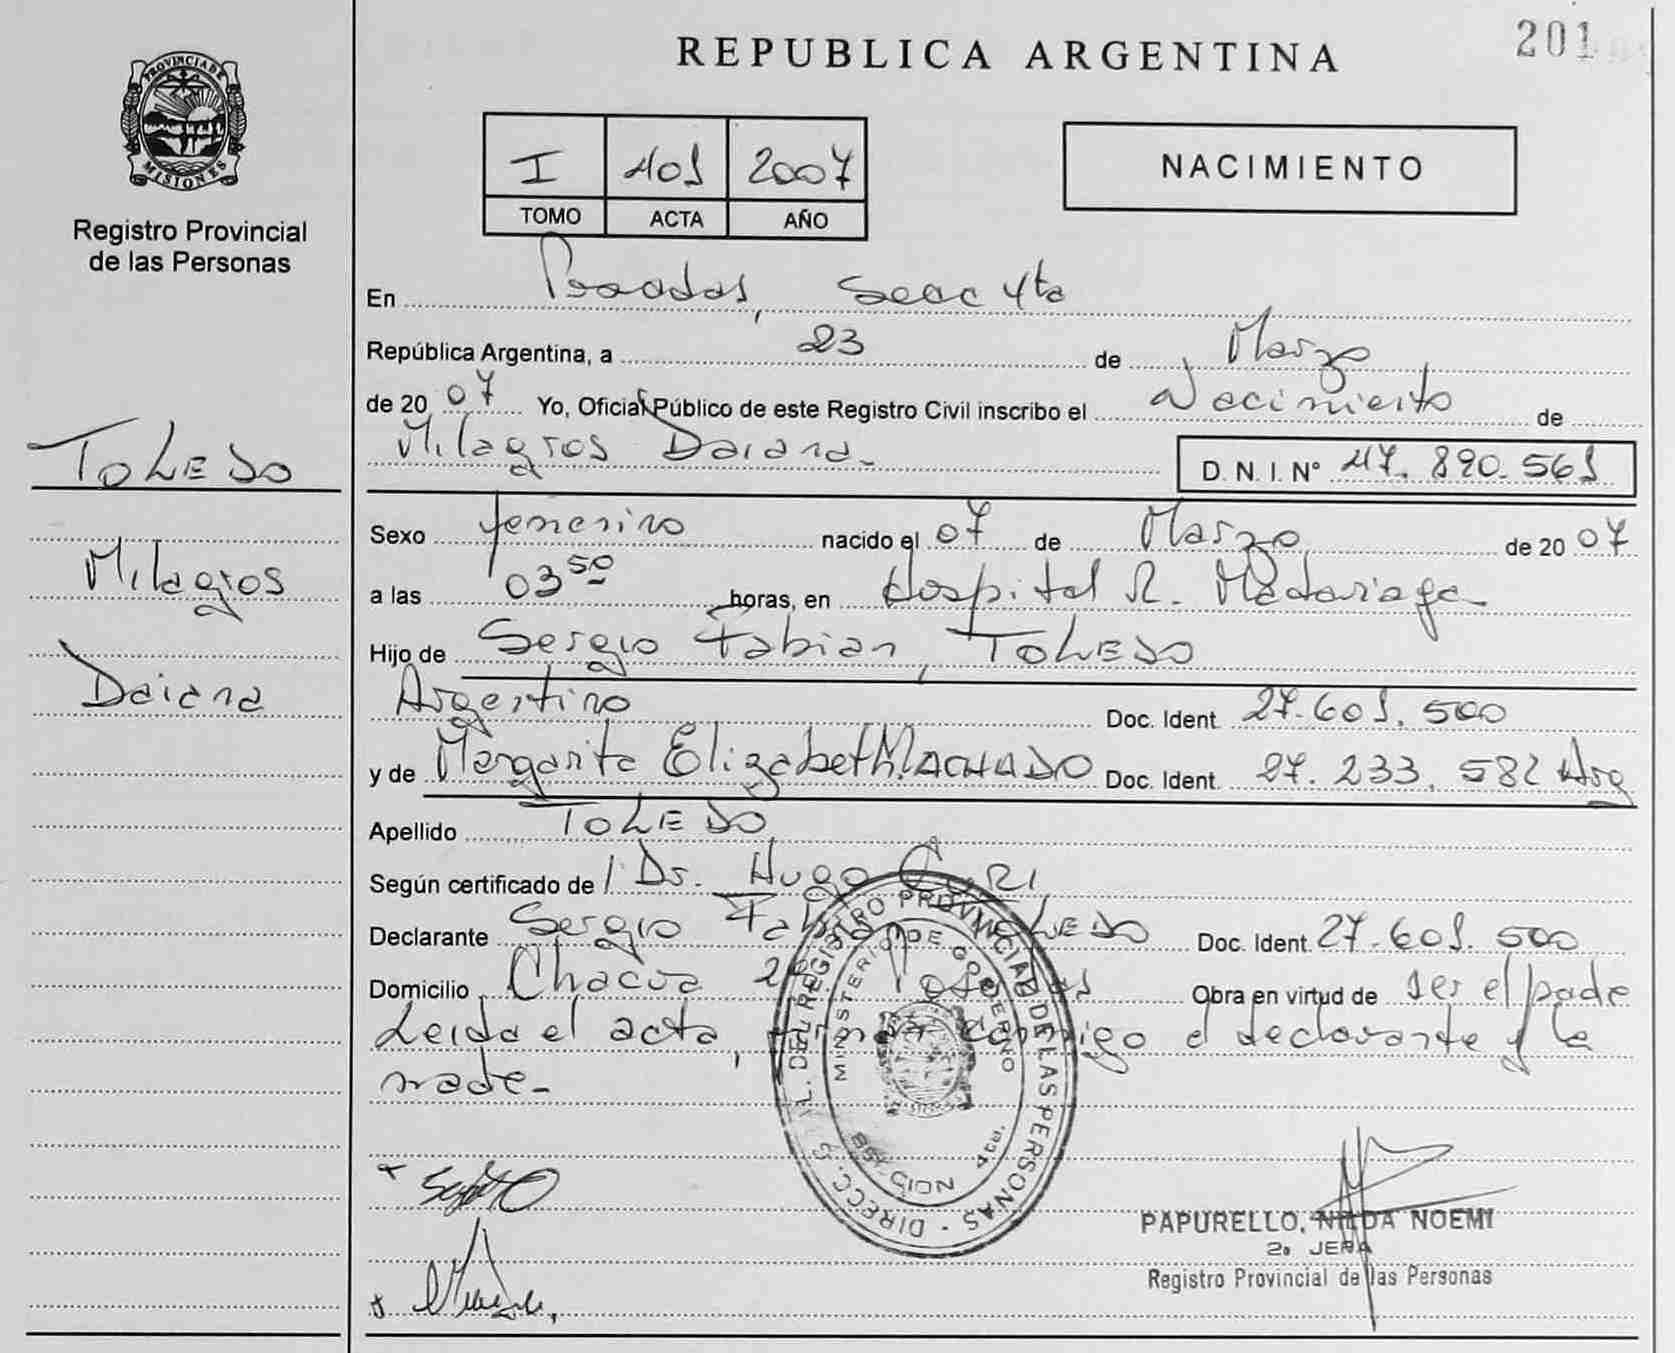 201
REPUBLICA ARGENTINA
PROVINCIA DE MISIONES
Registro Provincial
de las Personas
I 401 2007
TOMO ACTA AÑO
NACIMIENTO
En Posadas, Secc 4ta
República Argentina, a 23 de Marzo
de 2007 Yo, Oficial Público de este Registro Civil inscribo el Nacimiento de
Milagros Daiana. D.N.I. Nº 47.890.561
TOLEDO
Milagros
Daiana
Sexo femenino nacido el 07 de Marzo de 2007
a las 03 50 horas, en Hospital R. Madariaga
Hijo de Sergio Fabian, TOLEDO
Argentino Doc. Ident. 27.601.500
y de Margarita Elizabeth MACHADO Doc. Ident. 27.233.582 Arg
Apellido TOLEDO
Según certificado de Dr. Hugo CURI
Declarante Sergio Fabian TOLEDO Doc. Ident. 27.601.500
Domicilio Chacra Posadas Obra en virtud de ser el padre
Leida el acta, firman conmigo el declarante y la
madre-
DIRECC. GRAL. DEL REGISTRO PROVINCIAL DE LAS PERSONAS
MINISTERIO DE GOBIERNO
4ta.
PAPURELLO, NILDA NOEMI
2º JEFA
Registro Provincial de las Personas